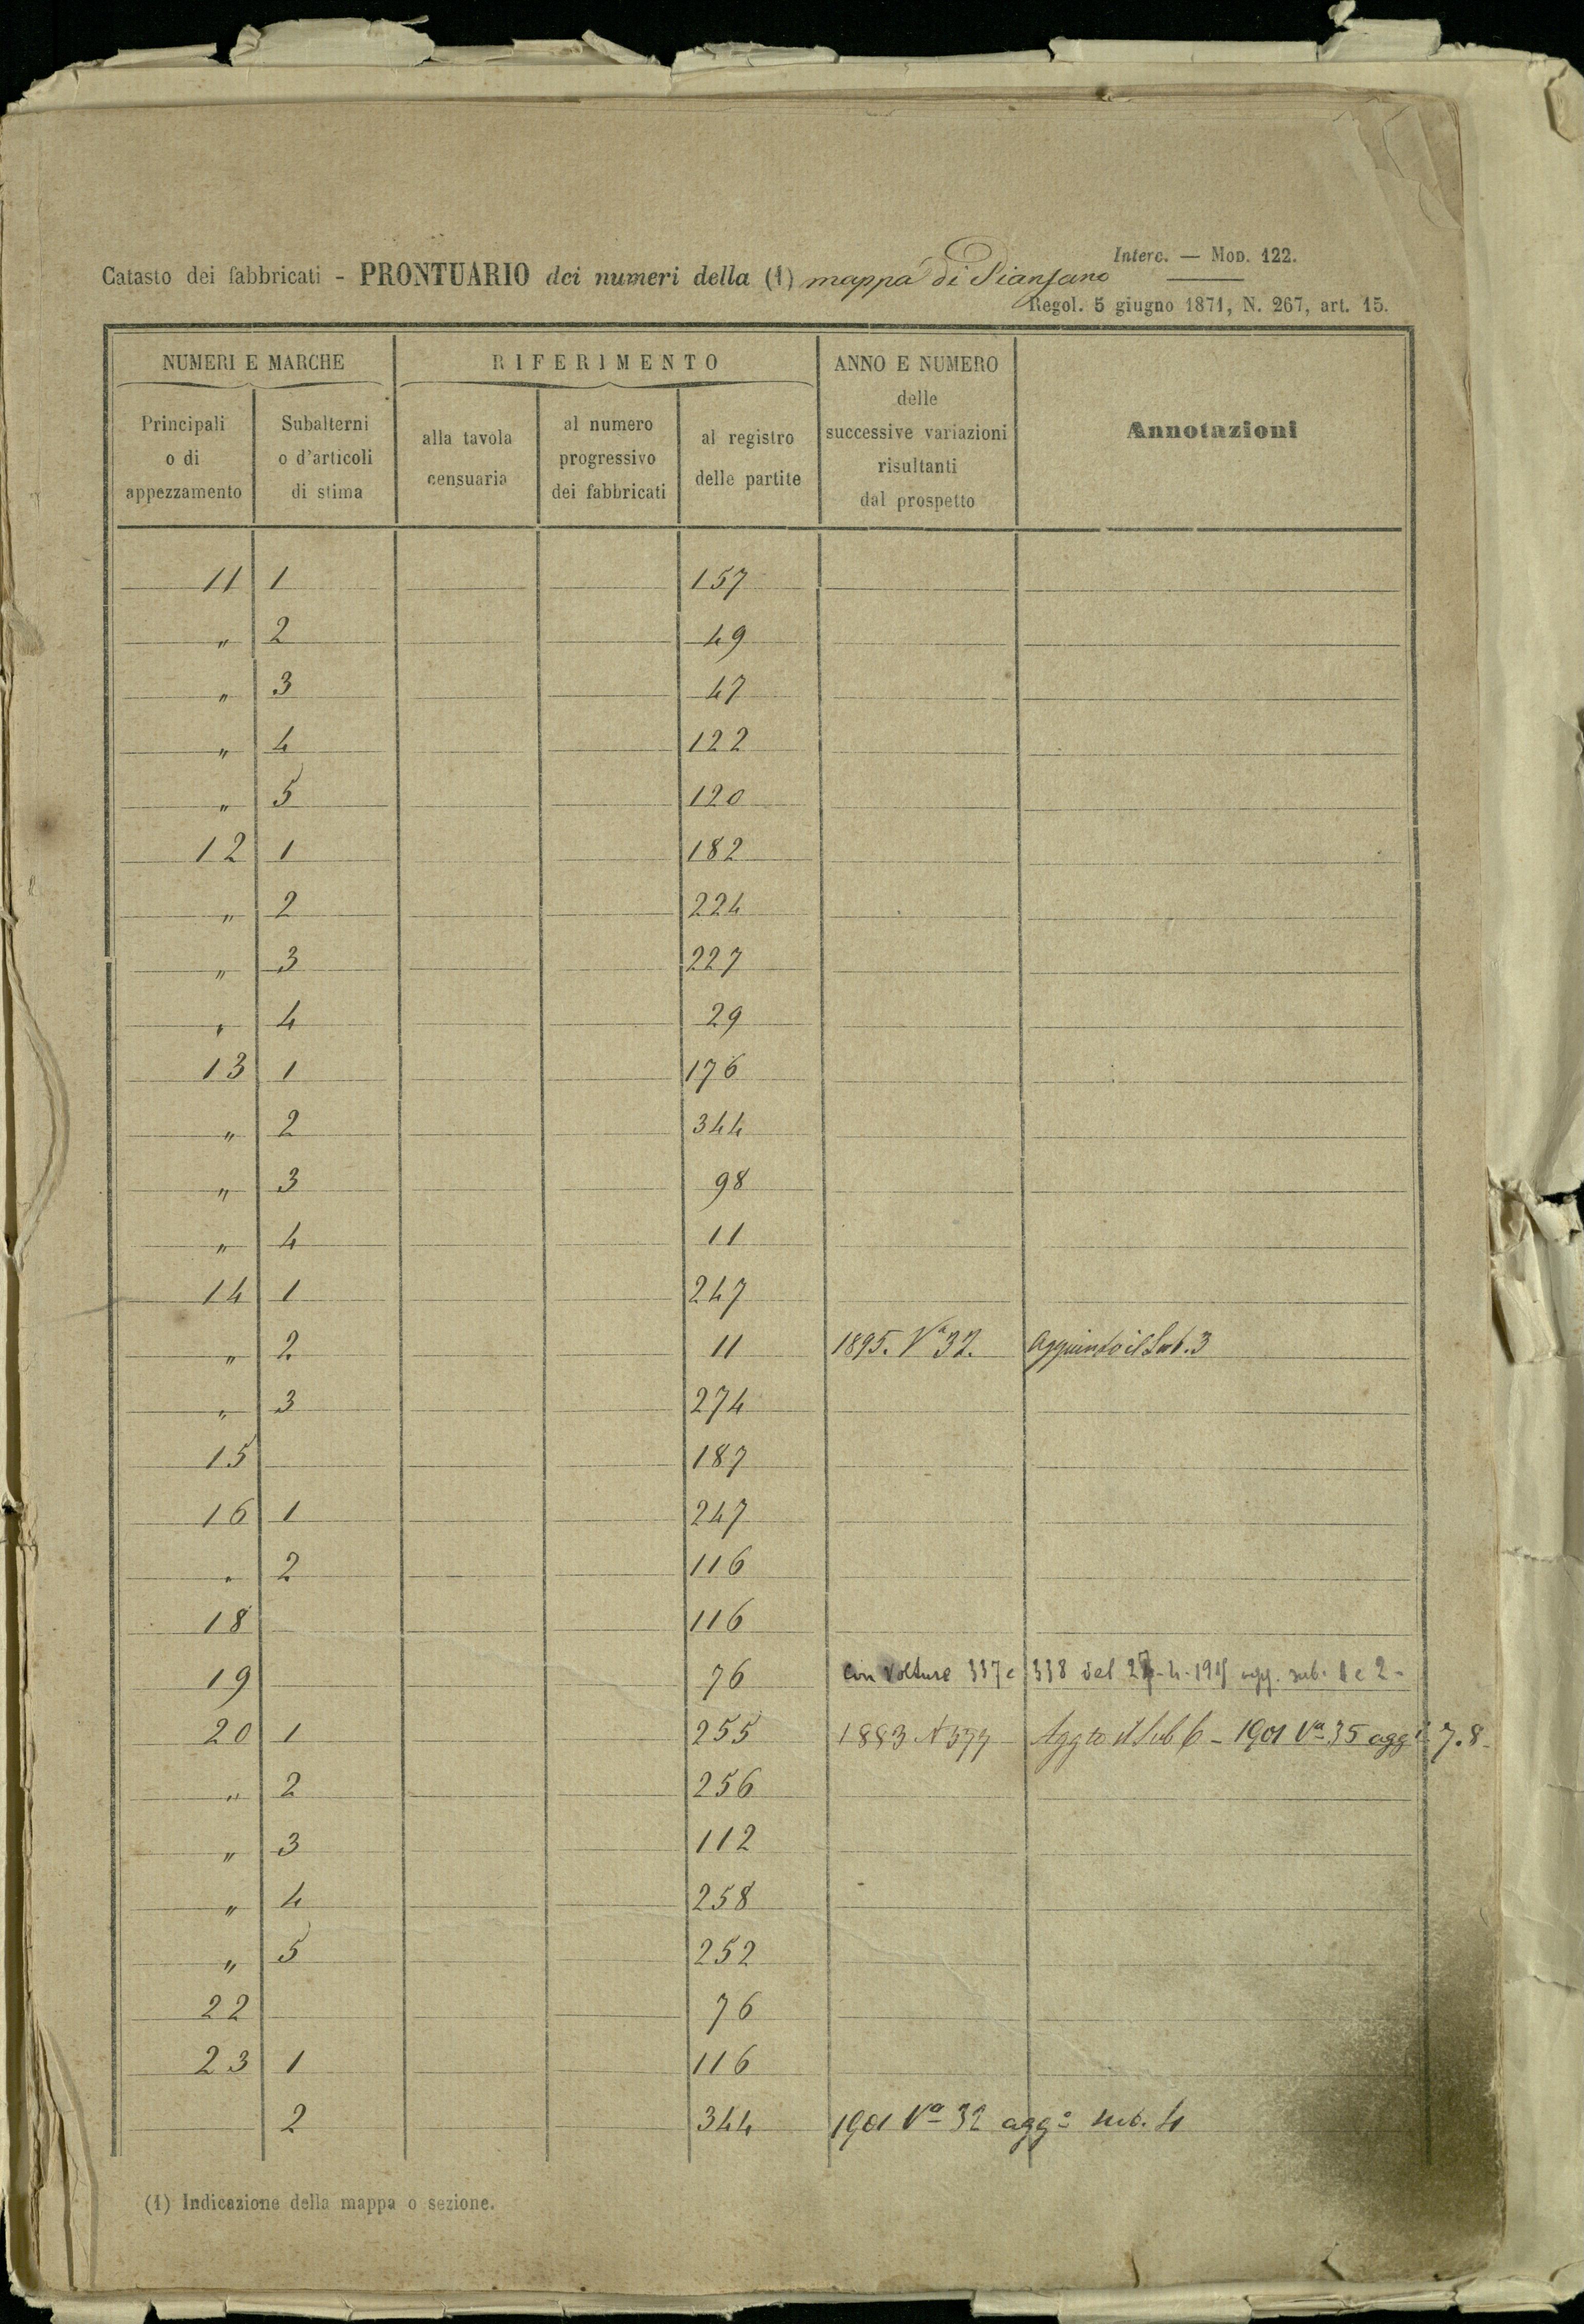 Interc. — Mod. 122.
Catasto dei fabbricati - PRONTUARIO dei numeri della (1) mappa di Piansano
Regol. 5 giugno 1871, N. 267, art. 15.
NUMERI E MARCHE RIFERIMENTO ANNO E NUMERO delle successive variazioni risultanti dal prospetto Annotazioni
Principali o di appezzamento Subalterni o d'articoli di stima alla tavola censuaria al numero progressivo dei fabbricati al registro delle partite
11 1 157
" 2 49
" 3 47
" 4 122
" 5 120
12 1 182
" 2 224
" 3 227
" 4 29
13 1 176
" 2 344
" 3 98
" 4 11
14 1 247
" 2 11 1895. Va 32. Aggiunto il Sub. 3
" 3 274
15 187
16 1 247
" 2 116
18 116
19 76 Con Volture 337 e 338 del agg. sub. 1 e 2 -
20 1 255 1883 Aggto il Sub 6 - 1901 Va 35 aggi 7.8-
" 2 256
" 3 112
" 4 258
" 5 252
22 76
23 1 116
2 344 1901 Va 32 aggo sub. 4
(1) Indicazione della mappa o sezione.